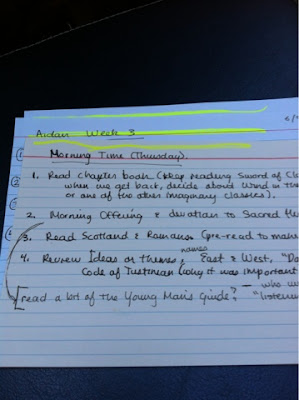 5/
Aidan Week 3
Morning Time (Thursday).
1. Read chapter book (keep reading Sword of Cl
when we get back, decide about Wind in the
or one of the other imaginary classics).
2. Morning Offering & devotion to Sacred He
3. Read Scotland & Romans (pre-read to make
names
4. Review Ideas or themes, East & West, "Da
Code of Justinian (why it was important
who w
read a bit of the Young Man's Guide? "listene